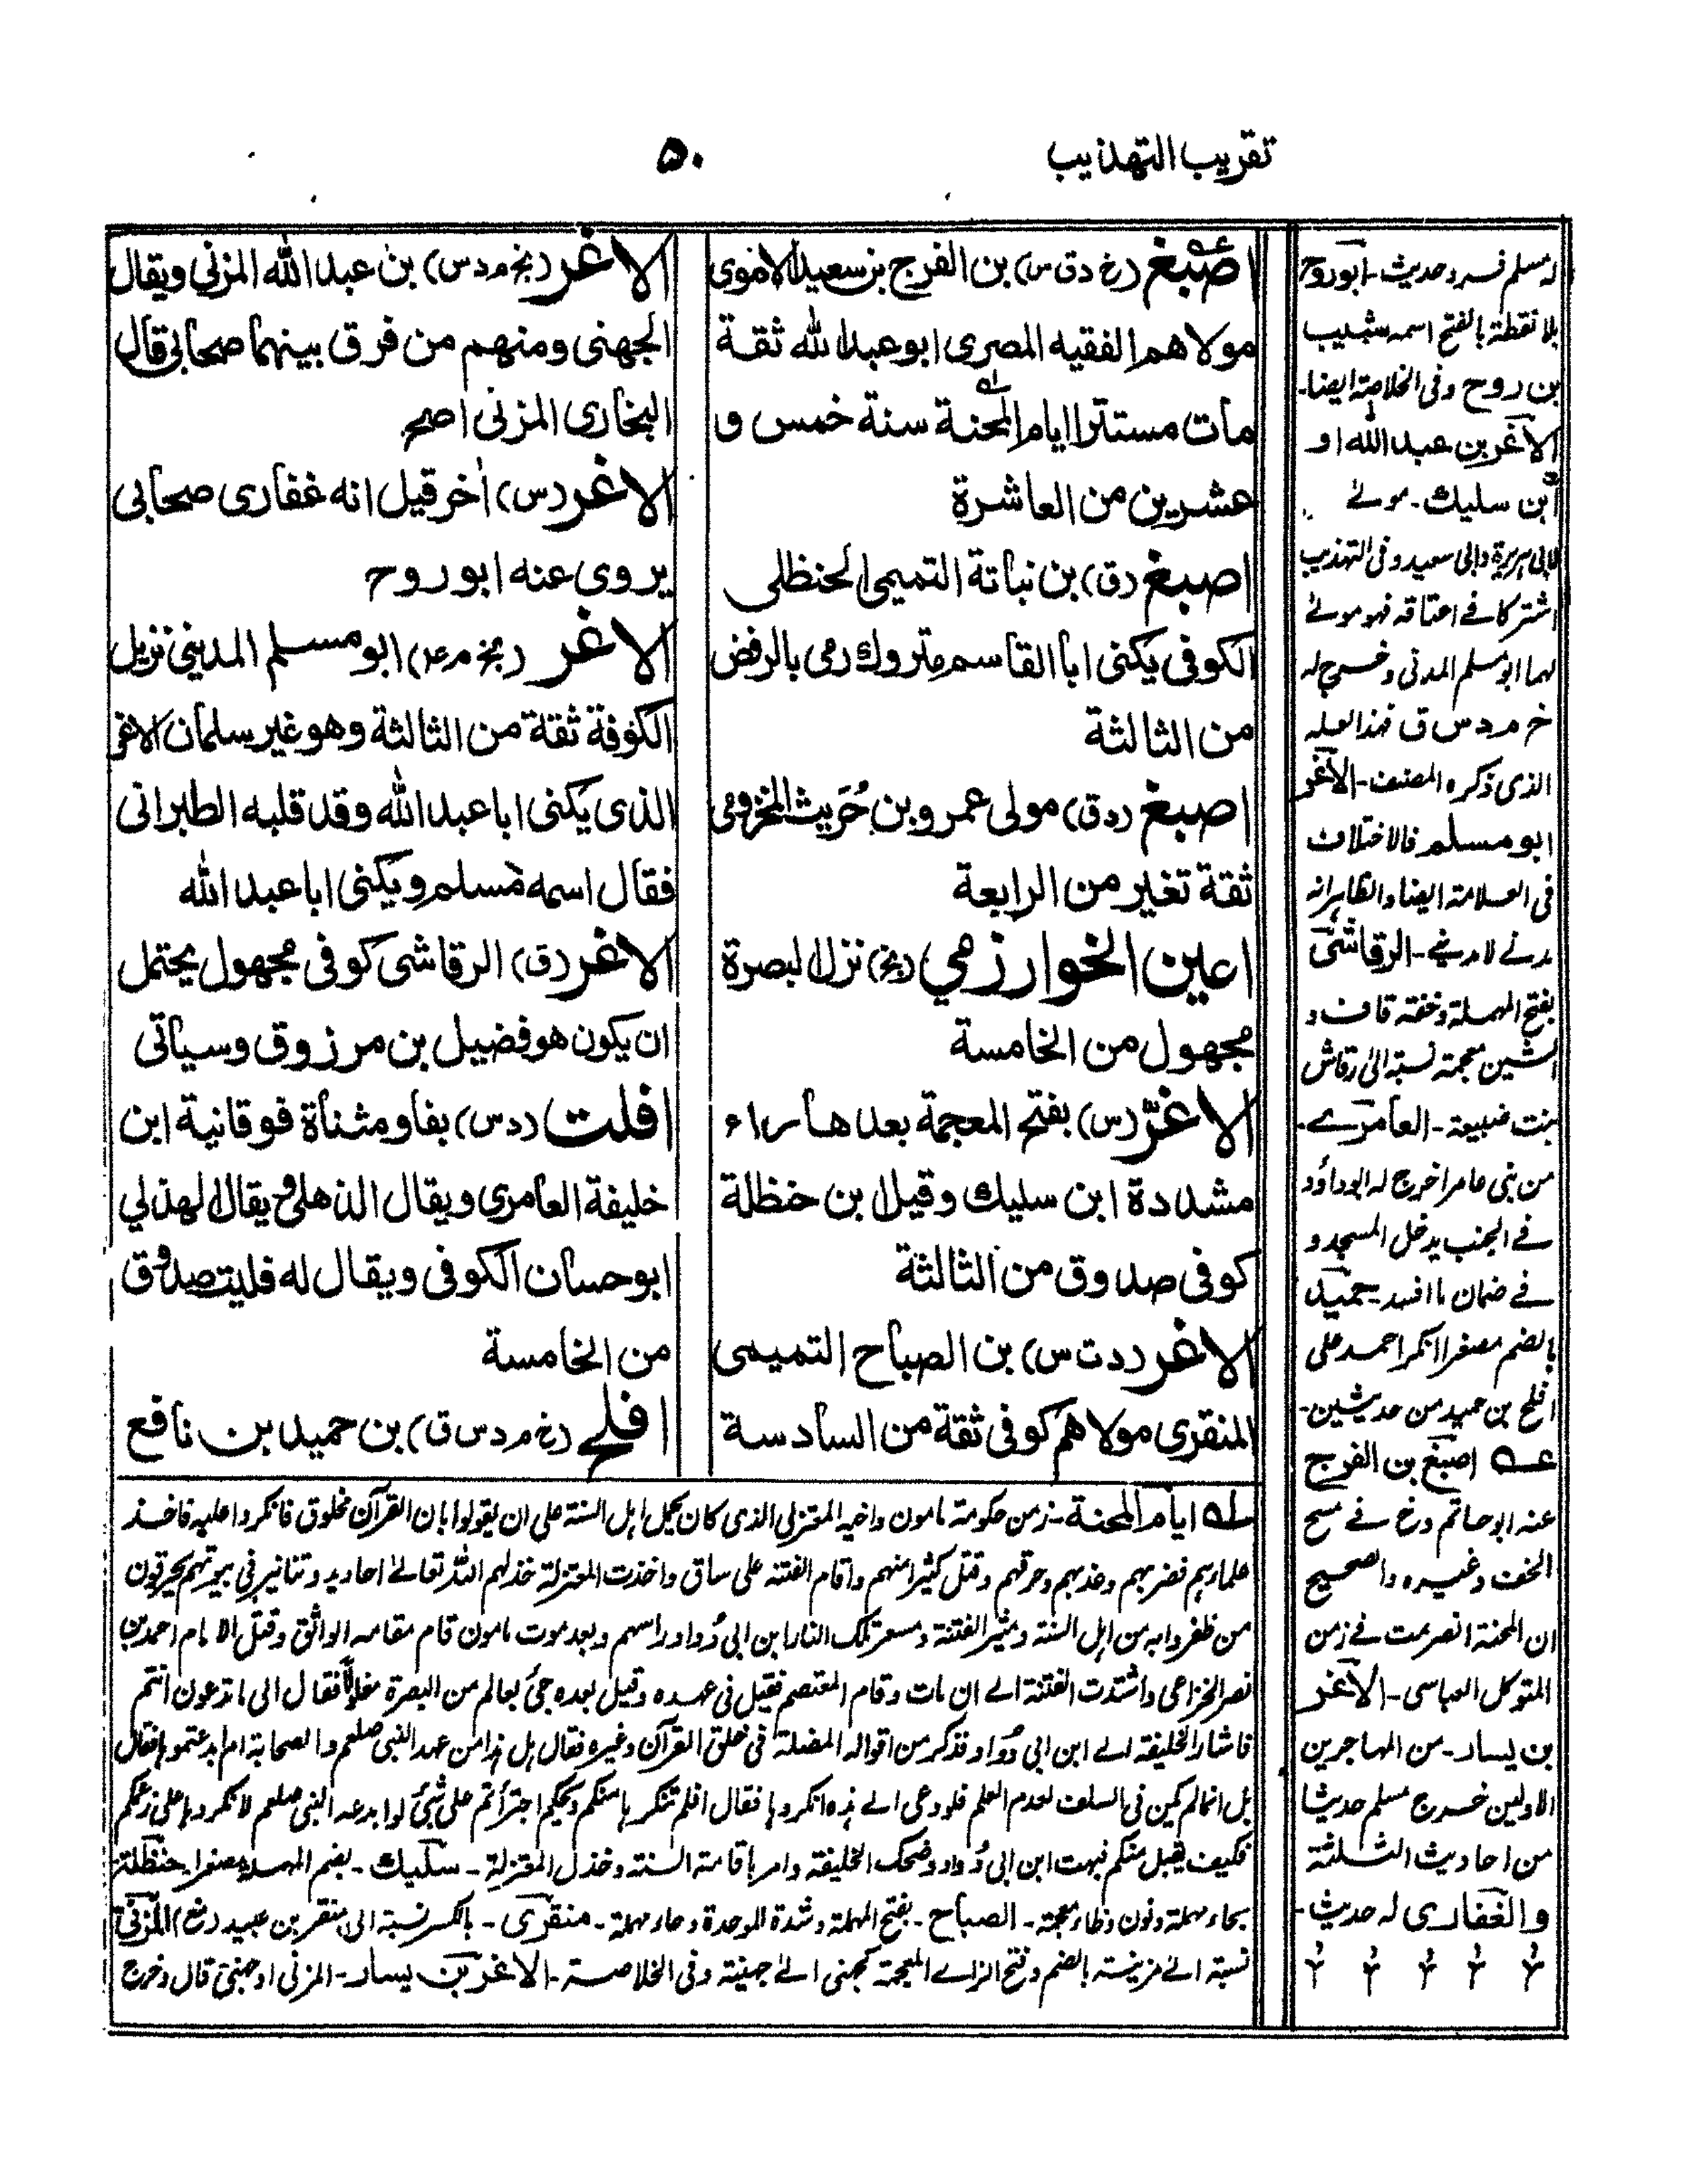 تقريب التهذيب
۵۰
اصبغ (خ د ق س) بن الفرج بن سعيد الاموى
مولاهم الفقيه المصرى ابو عبد الله ثقة
مات مستترا ايام المحنة سنة خمس و
عشرين من العاشرة
اصبغ (ق) بن نباتة التميمى الحنظلى
الكوفى يكنى ابا القاسم متروك رمى بالرفض
من الثالثة
اصبغ (د ق) مولى عمرو بن حُرَيث المخزومى
ثقة تغير من الرابعة
اعين الخوارزمى (بخ) نزل البصرة
مجهول من الخامسة
الاغرّ (س) بفتح المعجمة بعدها راء
مشددة ابن سليك وقيل ابن حنظلة
كوفى صدوق من الثالثة
الاغر (د ت س) بن الصباح التميمى
المنقرى مولاهم كوفى ثقة من السادسة
الاغر (بخ م د س) بن عبد الله المزنى ويقال
الجهنى ومنهم من فرق بينهما صحابى قال
البخارى المزنى اصح
الاغر (س) اٰخر قيل انه غفارى صحابى
يروى عنه ابو روح
الاغر (بخ م عه) ابو مسلم المدينى نزيل
الكوفة ثقة من الثالثة وهو غير سلمان الاغر
الذى يكنى ابا عبد الله وقد قلبه الطبرانى
فقال اسمه مُسلم ويكنى ابا عبد الله
الاغر (ق) الرقاشى كوفى مجهول يحتمل
ان يكون هو فضيل بن مرزوق وسيأتى
افلت (د س) بفا ومثناة فوقانية ابن
خليفة العامرى ويقال الذهلى ويقال الهذلي
ابو حسان الكوفى ويقال له فليت صدوق
من الخامسة
افلح (خ م د س ق) بن حميد بن نافع
له ايام المحنة - زمن حكومة مامون واخيه المعتزلى الذى كان يحمل اہل السنة على ان يقولوا بان القرآن مخلوق فانكروا عليه فاخذ
علماءہم فضربہم وعذبہم وحرقہم وقتل كثيرا منہم واقام الفتنه على ساق واخذت المعتزلة خذلہم اللہ تعالےٰ احاديد وتنانير فى بيوتہم يحرقون
من ظفروا به من اہل السنة ومثير الفتنة ومسعر تلك النار ابن ابى دُواد راسہم وبعد موت مامون قام مقامه الواثق وقتل الامام احمد بن
نصر الخزاعى واشتدت الفتنة الے ان مات وقام المعتصم فقيل فى عہده وقيل بعده جئ بعالم من البصرة مغلولا فقال الى ما تدعون انتم
فاشار الخليفة الے ابن ابى دُواد فذكر من اقواله المضلة فى خلق القرآن وغيره فقال ہل ہذا من عہد النبى صلعم والصحابة ام بدعتموہا فقال
بل انما لم يكن فى السلف لعدم العلم فلو دعى الے ہذه انكروہا فقال افلم تنكرہا منكم ويحكم اجترأتم على شئ لو ابدعه النبى صلعم لانكروہا على زعمكم
فكيف يقبل منكم فبہت ابن ابى دُواد وضحك الخليفة وامر باقامة السنة وخذل المعتزلة - سليك - بضم المہملة مصغرا - حنظلة
بحاء مہملة ونون وظاء معجمة - الصباح - بفتح المہملة وشدة الموحدة وحاء مہملة - منقرى - بالكسر نسبة الى منقر بن عبيد (مغ) المزنى
نسبة الے مزينة بالضم وفتح الزاے المعجمة كجہنى الےٰ جہينة وفى الخلاصة - الاغر بن يسار - المزنى او جہنى قال وخرج
له مسلم فرد حديث - ابو روح
بلا نقطة بالفتح اسمه شبيب
بن روح وفى الخلاصة ايضا -
الاغر بن عبد الله او
ابن سليك - مولے
لابى ہريرة وابى سعيد وفى التہذيب
اشتركا فے اعتاقه فہو مولےٰ
لہما ابو مسلم المدنى وخرج له
خ م د س ق فہذا لعله
الذى ذكره المصنف - الاغر
ابو مسلم فالاختلاف
فى العلامة ايضا والظاہر انه
مدنے لا مدينے - الرقاشى
بفتح المہملة وخفة قاف و
الشين معجمة نسبة الىٰ رقاش
بنت ضبيعة - العامرے -
من بنى عامر اخرج له ابو داؤد
فے الجنب يدخل المسجد و
فے ضمان ما افسد - حميد
بالضم مصغرا انكر احمد على
افلح بن حميد من حديثين -
عه اصبغ بن الفرج
عنه ابو حاتم و خ فے مسح
الخف وغيره والصحيح
ان المحنة انصرمت فے زمن
المتوكل العباسى - الاغر
بن يسار - من المہاجرين
الاولين خرج مسلم حديثا
من احاديث الثلثة
والغفارى له حديث -